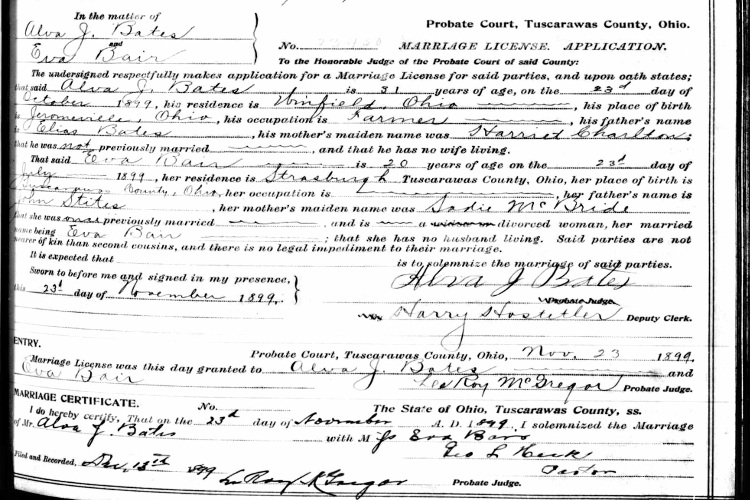 In the matter of
Alva J. Bates
and
Eva Bair
Probate Court, Tuscarawas County, Ohio.
No. MARRIAGE LICENSE. APPLICATION.
To the Honorable Judge of the Probate Court of said County:
The undersigned respectfully makes application for a Marriage License for said parties, and upon oath states;
that said Alva J. Bates is 31 years of age, on the 23d day of
October 1899, his residence is Winfield, Ohio, his place of birth
is Jeromeville, Ohio, his occupation is Farmer, his father's name
is Elias Bates, his mother's maiden name was Harriet Charlton;
that he was not previously married and that he has no wife living.
That said Eva Bair is 20 years of age on the 23d day of
July 1899, her residence is Strasburgh Tuscarawas County, Ohio, her place of birth is
Tuscarawas County, Ohio, her occupation is her father's name is
John Stites, her mother's maiden name was Sadie McBride
that she was once previously married and is a widow or divorced woman, her married
name being Eva Bair; that she has no husband living. Said parties are not
nearer of kin than second cousins, and there is no legal impediment to their marriage.
It is expected that is to solemnize the marriage of said parties.
Sworn to before me and signed in my presence, Alva J Bates
this 23d day of November 1899.
Probate Judge.
Harry Hostetler Deputy Clerk.
ENTRY.
Probate Court, Tuscarawas County, Ohio, Nov. 23 1899.
Marriage License was this day granted to Alva J. Bates and
Eva Bair LeRoy McGregor Probate Judge.
MARRIAGE CERTIFICATE. No. The State of Ohio, Tuscarawas County, ss.
I do hereby certify, That on the 23d day of November A. D. 1899, I solemnized the Marriage
of Mr. Alva J. Bates with Mrs Eva Barr
Geo L Heck
Pastor
Filed and Recorded, Dec, 13th 1899 LeRoy McGregor Probate Judge.